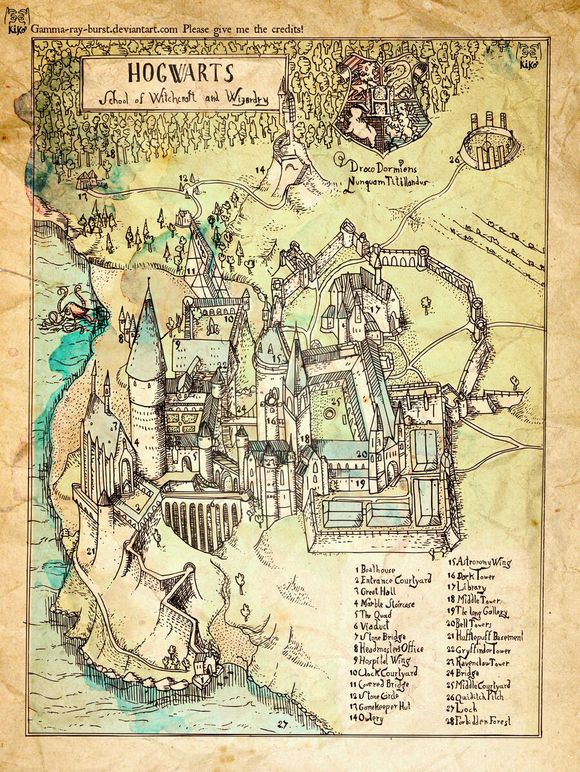 KiKo Gamma-ray-burst.deviantart.com Please give me the credits!
KiKo
HOGWARTS
School of Witchcraft and Wizardry
Draco Dormiens
Nunquam Titillandus
28
13
12
14
26
11
10
17
8
9
3
24
16
25
18
5
20
19
2
6
21
1
27.
1 Boathouse
2 Entrance Courtyard
3 Great Hall
4 Marble Staircase
5 The Quad
6 Viaduct
7 Stone Bridge
8 Headmasters Office
9 Hospital Wing
10 Clock Courtyard
11 Covered Bridge
12 Stone Circle
13 Gamekeeper Hut
14 Owlery
15 Astronomy Wing
16 Dark Tower
17 Library
18 Middle Tower
19 The long Gallery
20 Bell Towers
21 Hufflepuff Basement
22 Gryffindor Tower
23 Ravenclaw Tower
24 Bridge
25 Middle Courtyard
26 Quiditch Pitch
27 Loch
28 Forbidden Forest